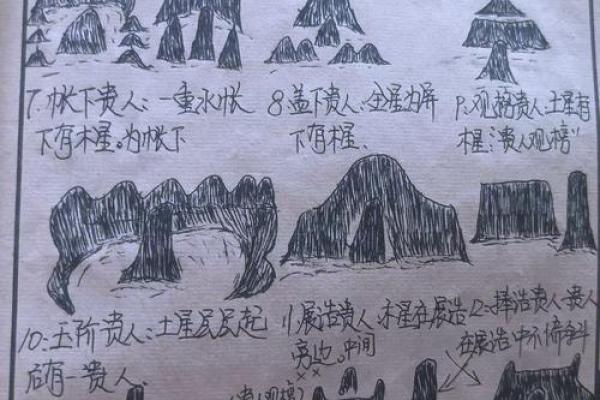 7、帐下贵人：一重水帐
下有木星。为帐下
8盖下贵人：金星为屏
下有木星.
9.观榜贵人：土星有
木星：“贵人观榜”
10：玉阶贵人：土星层层起
后有一贵人.
11展诰贵人：木星在展诰
旁边。中间
××
12：捧诰贵人：贵人
在展诰中
（贵人观榜）